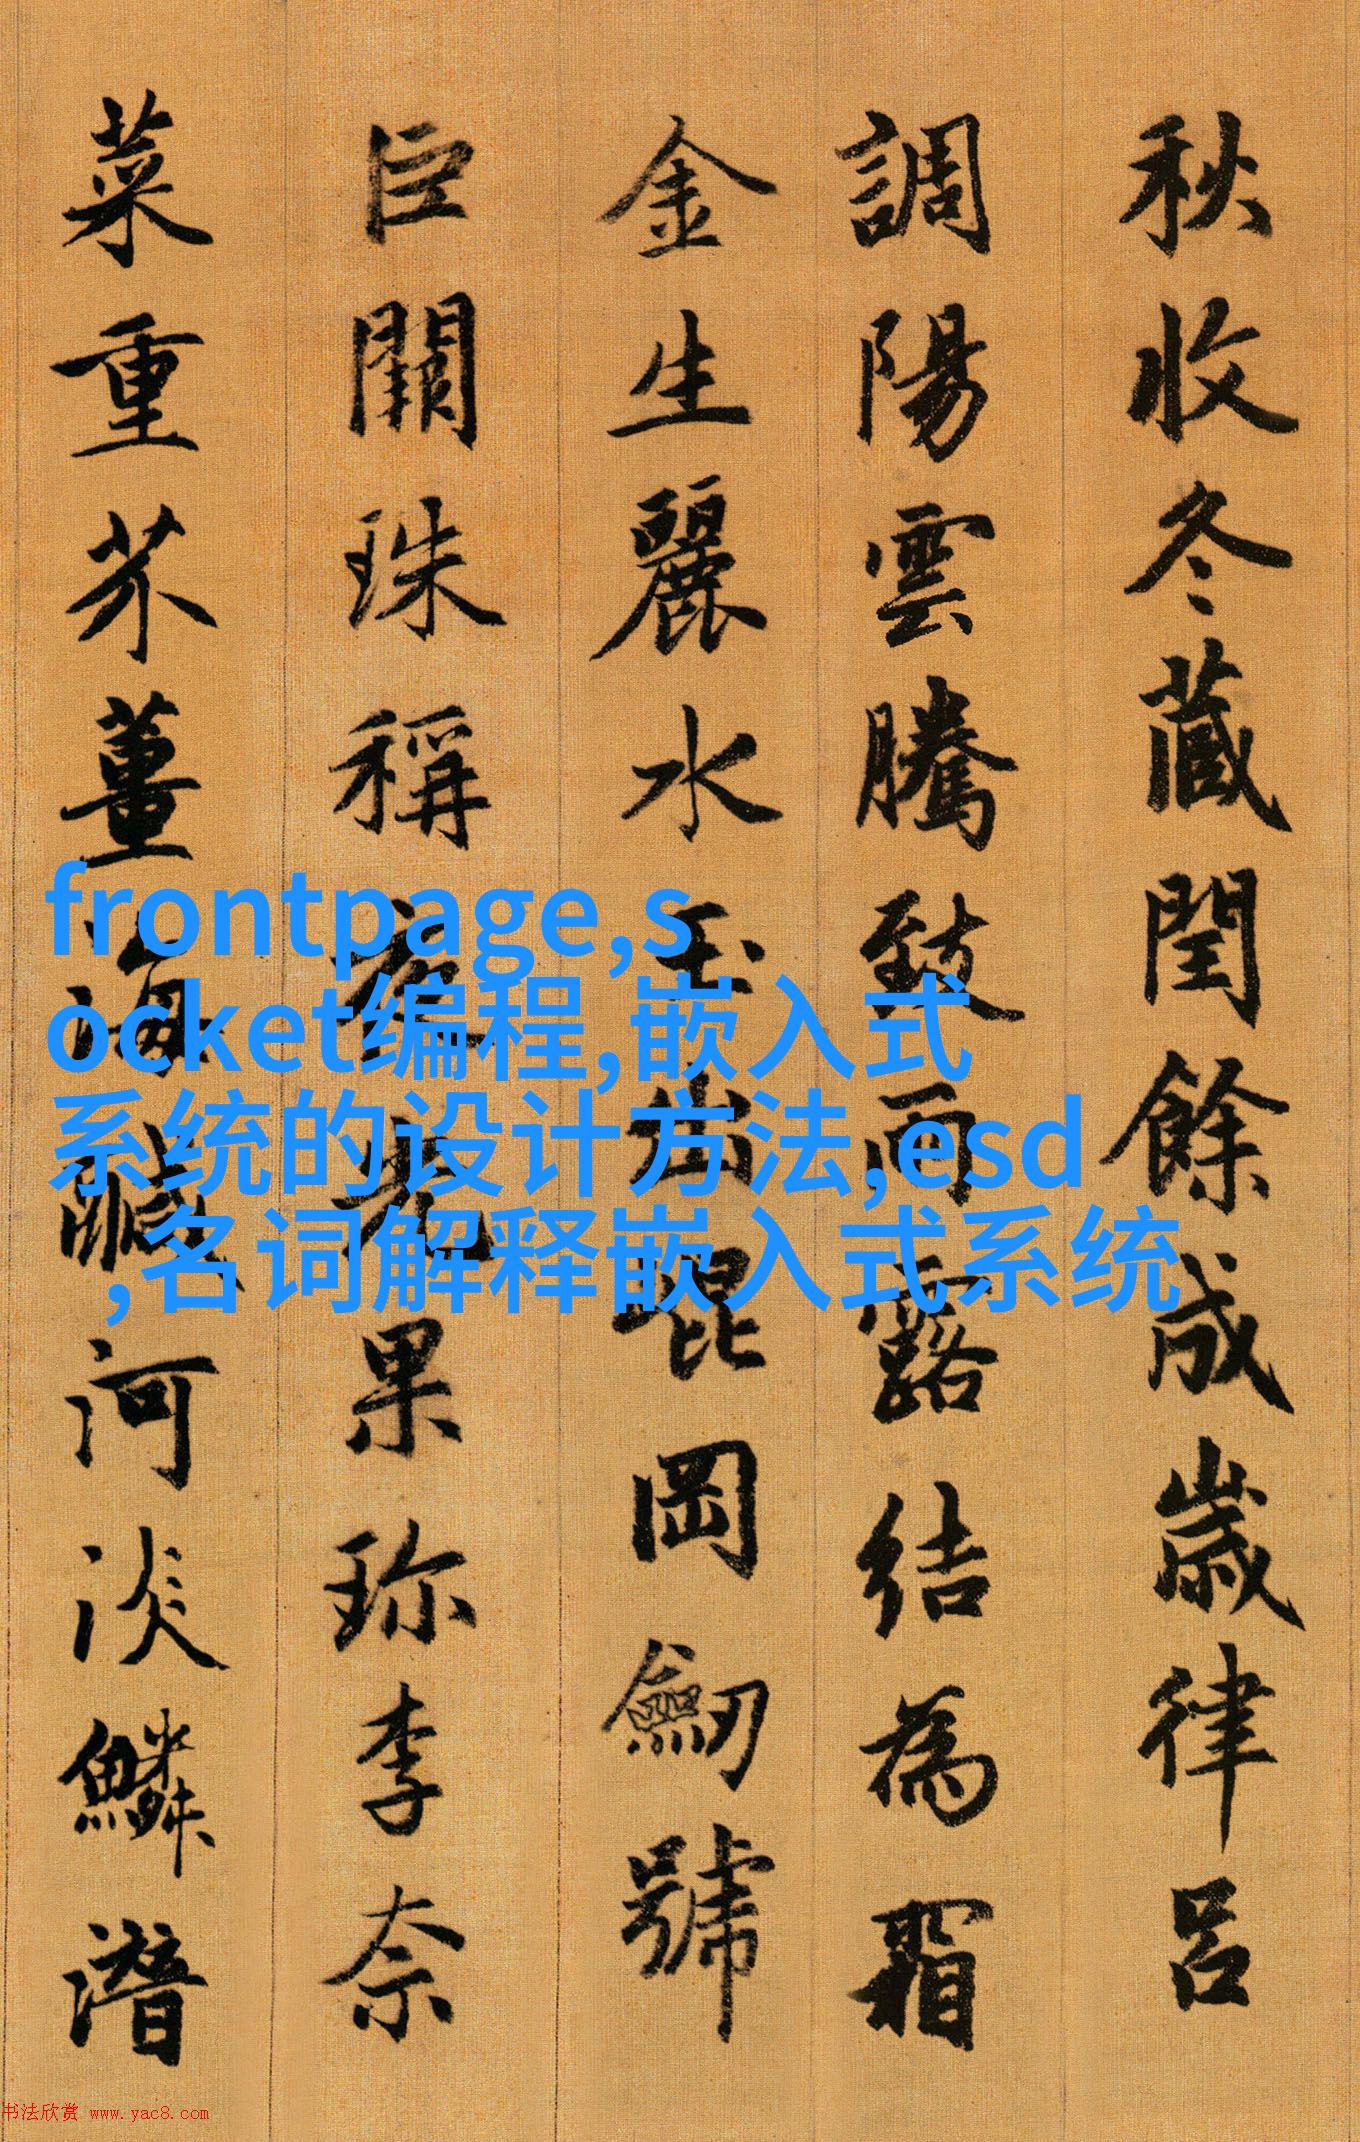 秋收冬藏閏餘成歲律呂
調陽雲騰致雨露結為霜
金生麗水玉出崐岡劒號
巨闕珠稱夜光果珎李柰
菜重芥薑海鹹河淡鱗潛
frontpage,s
ocket编程,嵌入式
系统的设计方法,esd
,名词解释嵌入式系统
书法欣赏 www.yac8.com